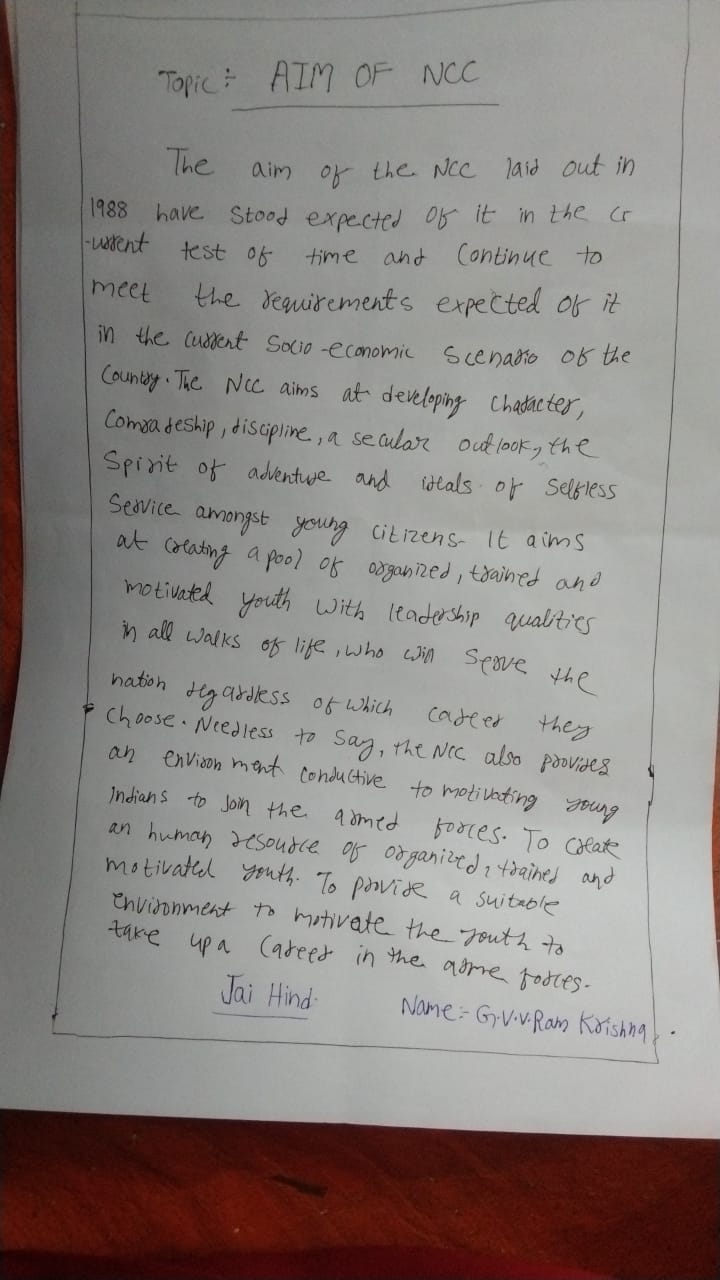 Topic :- AIM OF NCC
The aim of the NCC laid out in
1988 have stood expected of it in the cr
-urrent test of time and Continue to
meet the requirements expected of it
in the current Socio-economic Scenario of the
Country. The NCC aims at developing character,
Comradeship, discipline, a secular outlook, the
Spirit of adventure and ideals of Selfless
Service amongst young citizens. It aims
at creating a pool of organized, trained and
motivated youth with leadership qualities
in all walks of life, who will serve the
nation regardless of which career they
choose. Needless to say, the NCC also provides
an environment conductive to motivating young
Indians to Join the armed forces. To create
an human resource of organized, trained and
motivated youth. To provide a suitable
environment to motivate the youth to
take up a career in the arme forces.
Jai Hind. Name:- G.V.V.Ram Krishna.